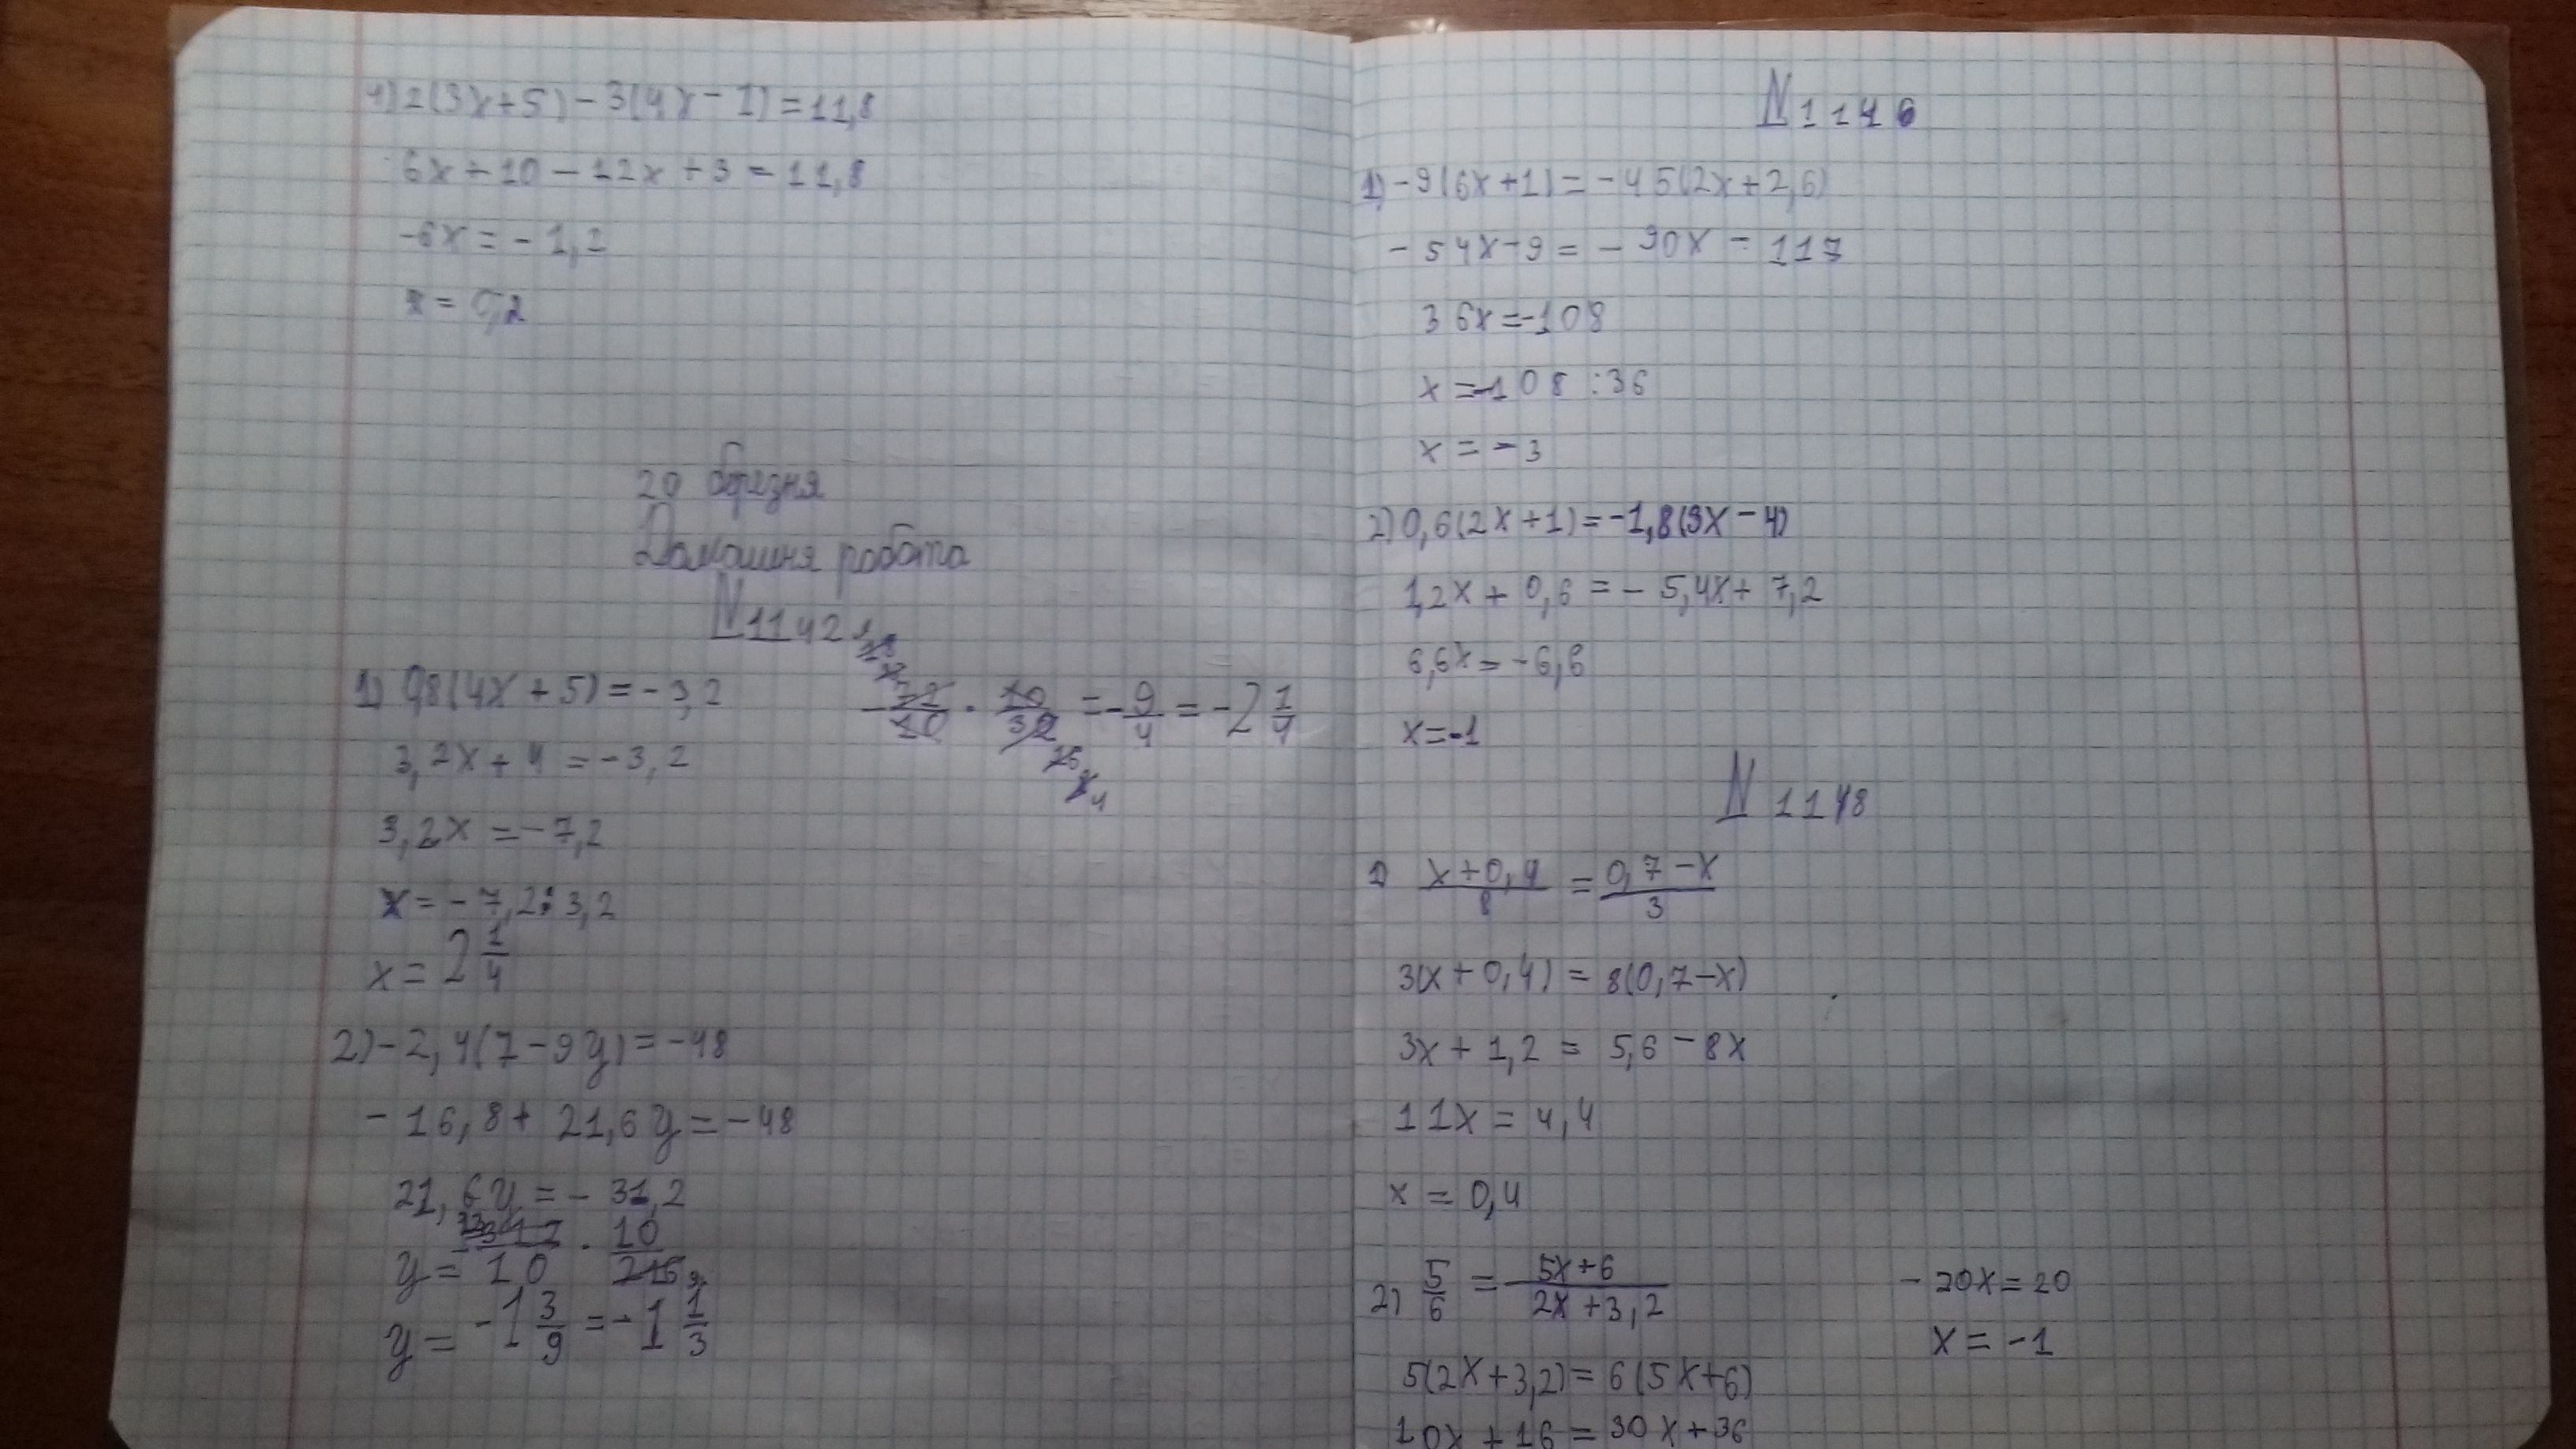 4) 2(3x+5)-3(4x-1)=11,8
6x+10-12x+3=11,8
-6x=-1,2
x=0,2
20 березня
Домашня робота
N1142
1) 0,8(4x+5)=-3,2
3,2x+4=-3,2
3,2x=-7,2
x=-7,2:3,2
x=2 1/4
-72/10 · 10/32 = -9/4 = -2 1/4
36
18
9
16
8
4
2) -2,4(7-9y)=-48
-16,8+21,6y=-48
21,6y=-31,2
y=-312/10 · 10/216
9
y=-1 3/9=-1 1/3
N1146
1) -9(6x+1)=-45(2x+2,6)
-54x-9=-90x-117
36x=-108
x=-108:36
x=-3
2) 0,6(2x+1)=-1,8(3x-4)
1,2x+0,6=-5,4x+7,2
6,6x=-6,6
x=-1
N1148
1) x+0,4/8=0,7-x/3
3(x+0,4)=8(0,7-x)
3x+1,2=5,6-8x
11x=4,4
x=0,4
2) 5/6=5x+6/2x+3,2
5(2x+3,2)=6(5x+6)
10x+16=30x+36
-20x=20
x=-1